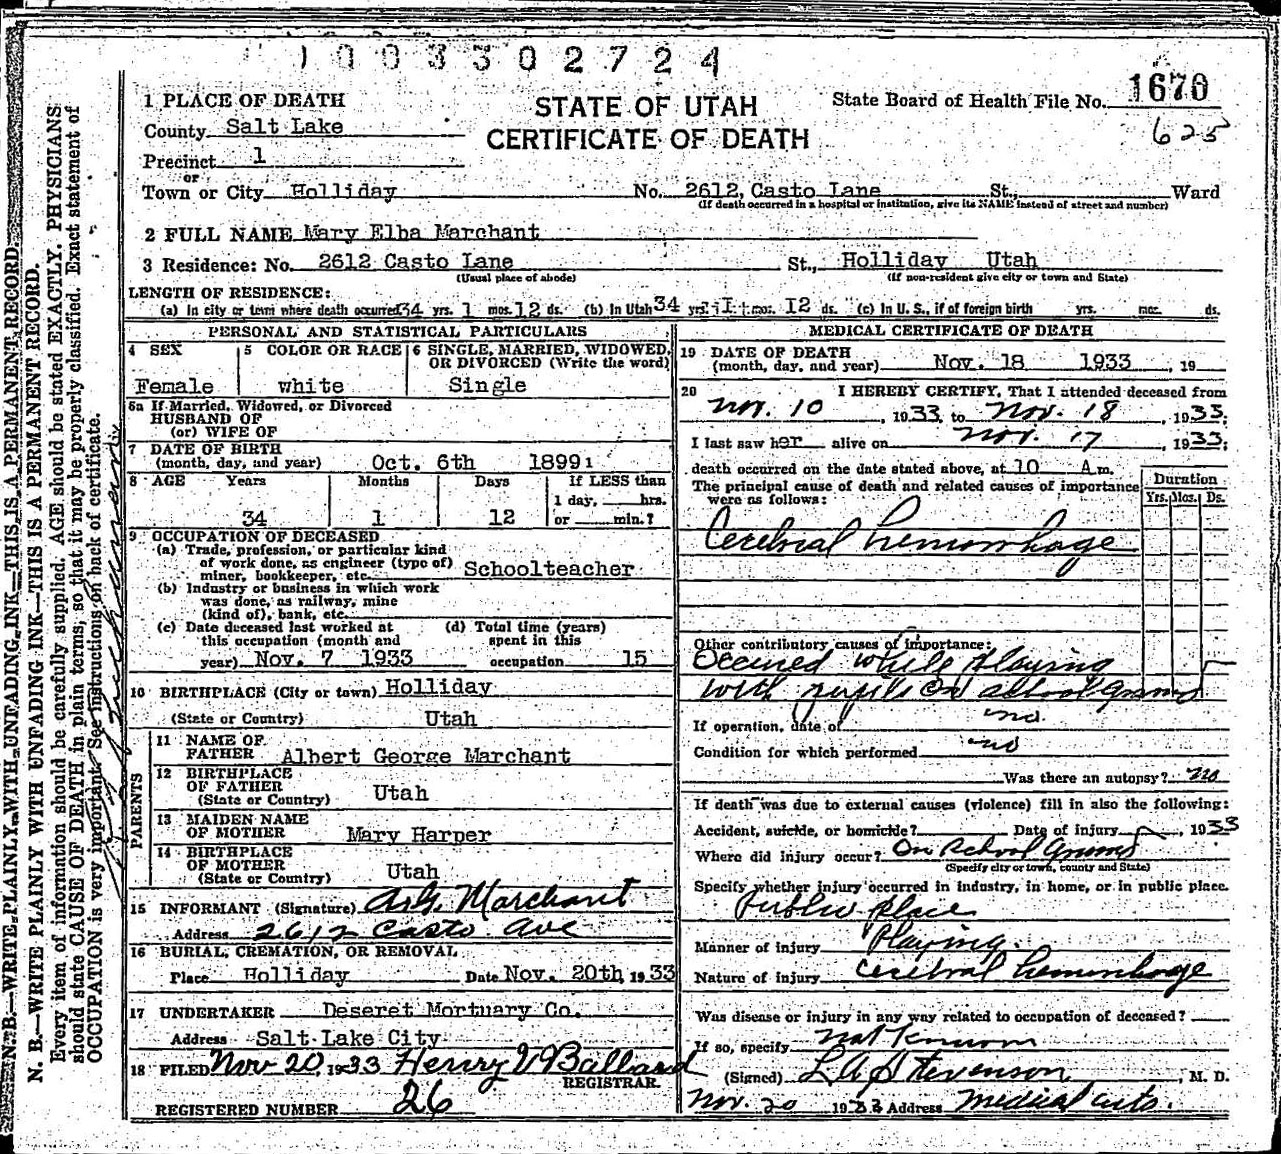 1003302724
1670
625
STATE OF UTAH
CERTIFICATE OF DEATH
State Board of Health File No. 1670
1 PLACE OF DEATH
County Salt Lake
Precinct 1
or
Town or City Holliday No. 2612, Casto Lane St., Ward
(If death occurred in a hospital or institution, give its NAME instead of street and number)
2 FULL NAME Mary Elba Marchant
3 Residence: No. 2612 Casto Lane St., Holliday Utah
(Usual place of abode) (If non-resident give city or town and State)
LENGTH OF RESIDENCE:
(a) In city or town where death occurred 34 yrs. 1 mos. 12 ds. (b) In Utah 34 yrs. 1 mos. 12 ds. (c) In U. S., if of foreign birth yrs. mos. ds.
PERSONAL AND STATISTICAL PARTICULARS
4 SEX 5 COLOR OR RACE 6 SINGLE, MARRIED, WIDOWED, OR DIVORCED (Write the word)
Female white Single
6a If Married, Widowed, or Divorced
HUSBAND OF
(or) WIFE OF
7 DATE OF BIRTH
(month, day, and year) Oct. 6th 1899
8 AGE Years Months Days If LESS than
1 day, hrs.
34 1 12 or min.?
9 OCCUPATION OF DECEASED
(a) Trade, profession, or particular kind
of work done, as engineer (type of)
miner, bookkeeper, etc. Schoolteacher
(b) Industry or business in which work
was done, as railway, mine
(kind of), bank, etc.
(c) Date deceased last worked at (d) Total time (years)
this occupation (month and spent in this
year) Nov. 7 1933 occupation 15
10 BIRTHPLACE (City or town) Holliday
(State or Country) Utah
PARENTS
11 NAME OF
FATHER Albert George Marchant
12 BIRTHPLACE
OF FATHER
(State or Country) Utah
13 MAIDEN NAME
OF MOTHER Mary Harper
14 BIRTHPLACE
OF MOTHER
(State or Country) Utah
15 INFORMANT (Signature) A.G. Marchant
Address 2612 Casto Ave
16 BURIAL, CREMATION, OR REMOVAL
Place Holliday Date Nov. 20th, 1933
17 UNDERTAKER Deseret Mortuary Co.
Address Salt Lake City
18 FILED Nov 20, 1933 Henry V Ballard
REGISTRAR.
REGISTERED NUMBER 26
MEDICAL CERTIFICATE OF DEATH
19 DATE OF DEATH
(month, day, and year) Nov. 18 1933, 19
20 I HEREBY CERTIFY, That I attended deceased from
Nov. 10, 1933, to Nov. 18, 1933;
I last saw her alive on Nov. 17, 1933;
death occurred on the date stated above, at 10 A m.
The principal cause of death and related causes of importance
were as follows:
Duration
Yrs. Mos. Ds.
Cerebral hemorrhage
Other contributory causes of importance:
Occured while playing
with pupils on school ground
If operation, date of no
Condition for which performed no
Was there an autopsy? no
If death was due to external causes (violence) fill in also the following:
Accident, suicide, or homicide? Date of injury , 1933
Where did injury occur? On School Ground
(Specify city or town, county and State)
Specify whether injury occurred in industry, in home, or in public place.
Public place
Manner of injury Playing.
Nature of injury Cerebral hemorrhage
Was disease or injury in any way related to occupation of deceased?
If so, specify not known
(Signed) L A Stevenson, M. D.
Nov. 20 1933 Address Medical arts.
N. B.—WRITE PLAINLY WITH UNFADING INK—THIS IS A PERMANENT RECORD.
N. B.—WRITE PLAINLY WITH UNFADING INK—THIS IS A PERMANENT RECORD.
Every item of information should be carefully supplied. AGE should be stated EXACTLY. PHYSICIANS
should state CAUSE OF DEATH in plain terms, so that it may be properly classified. Exact statement of
OCCUPATION is very important. See instructions on back of certificate.